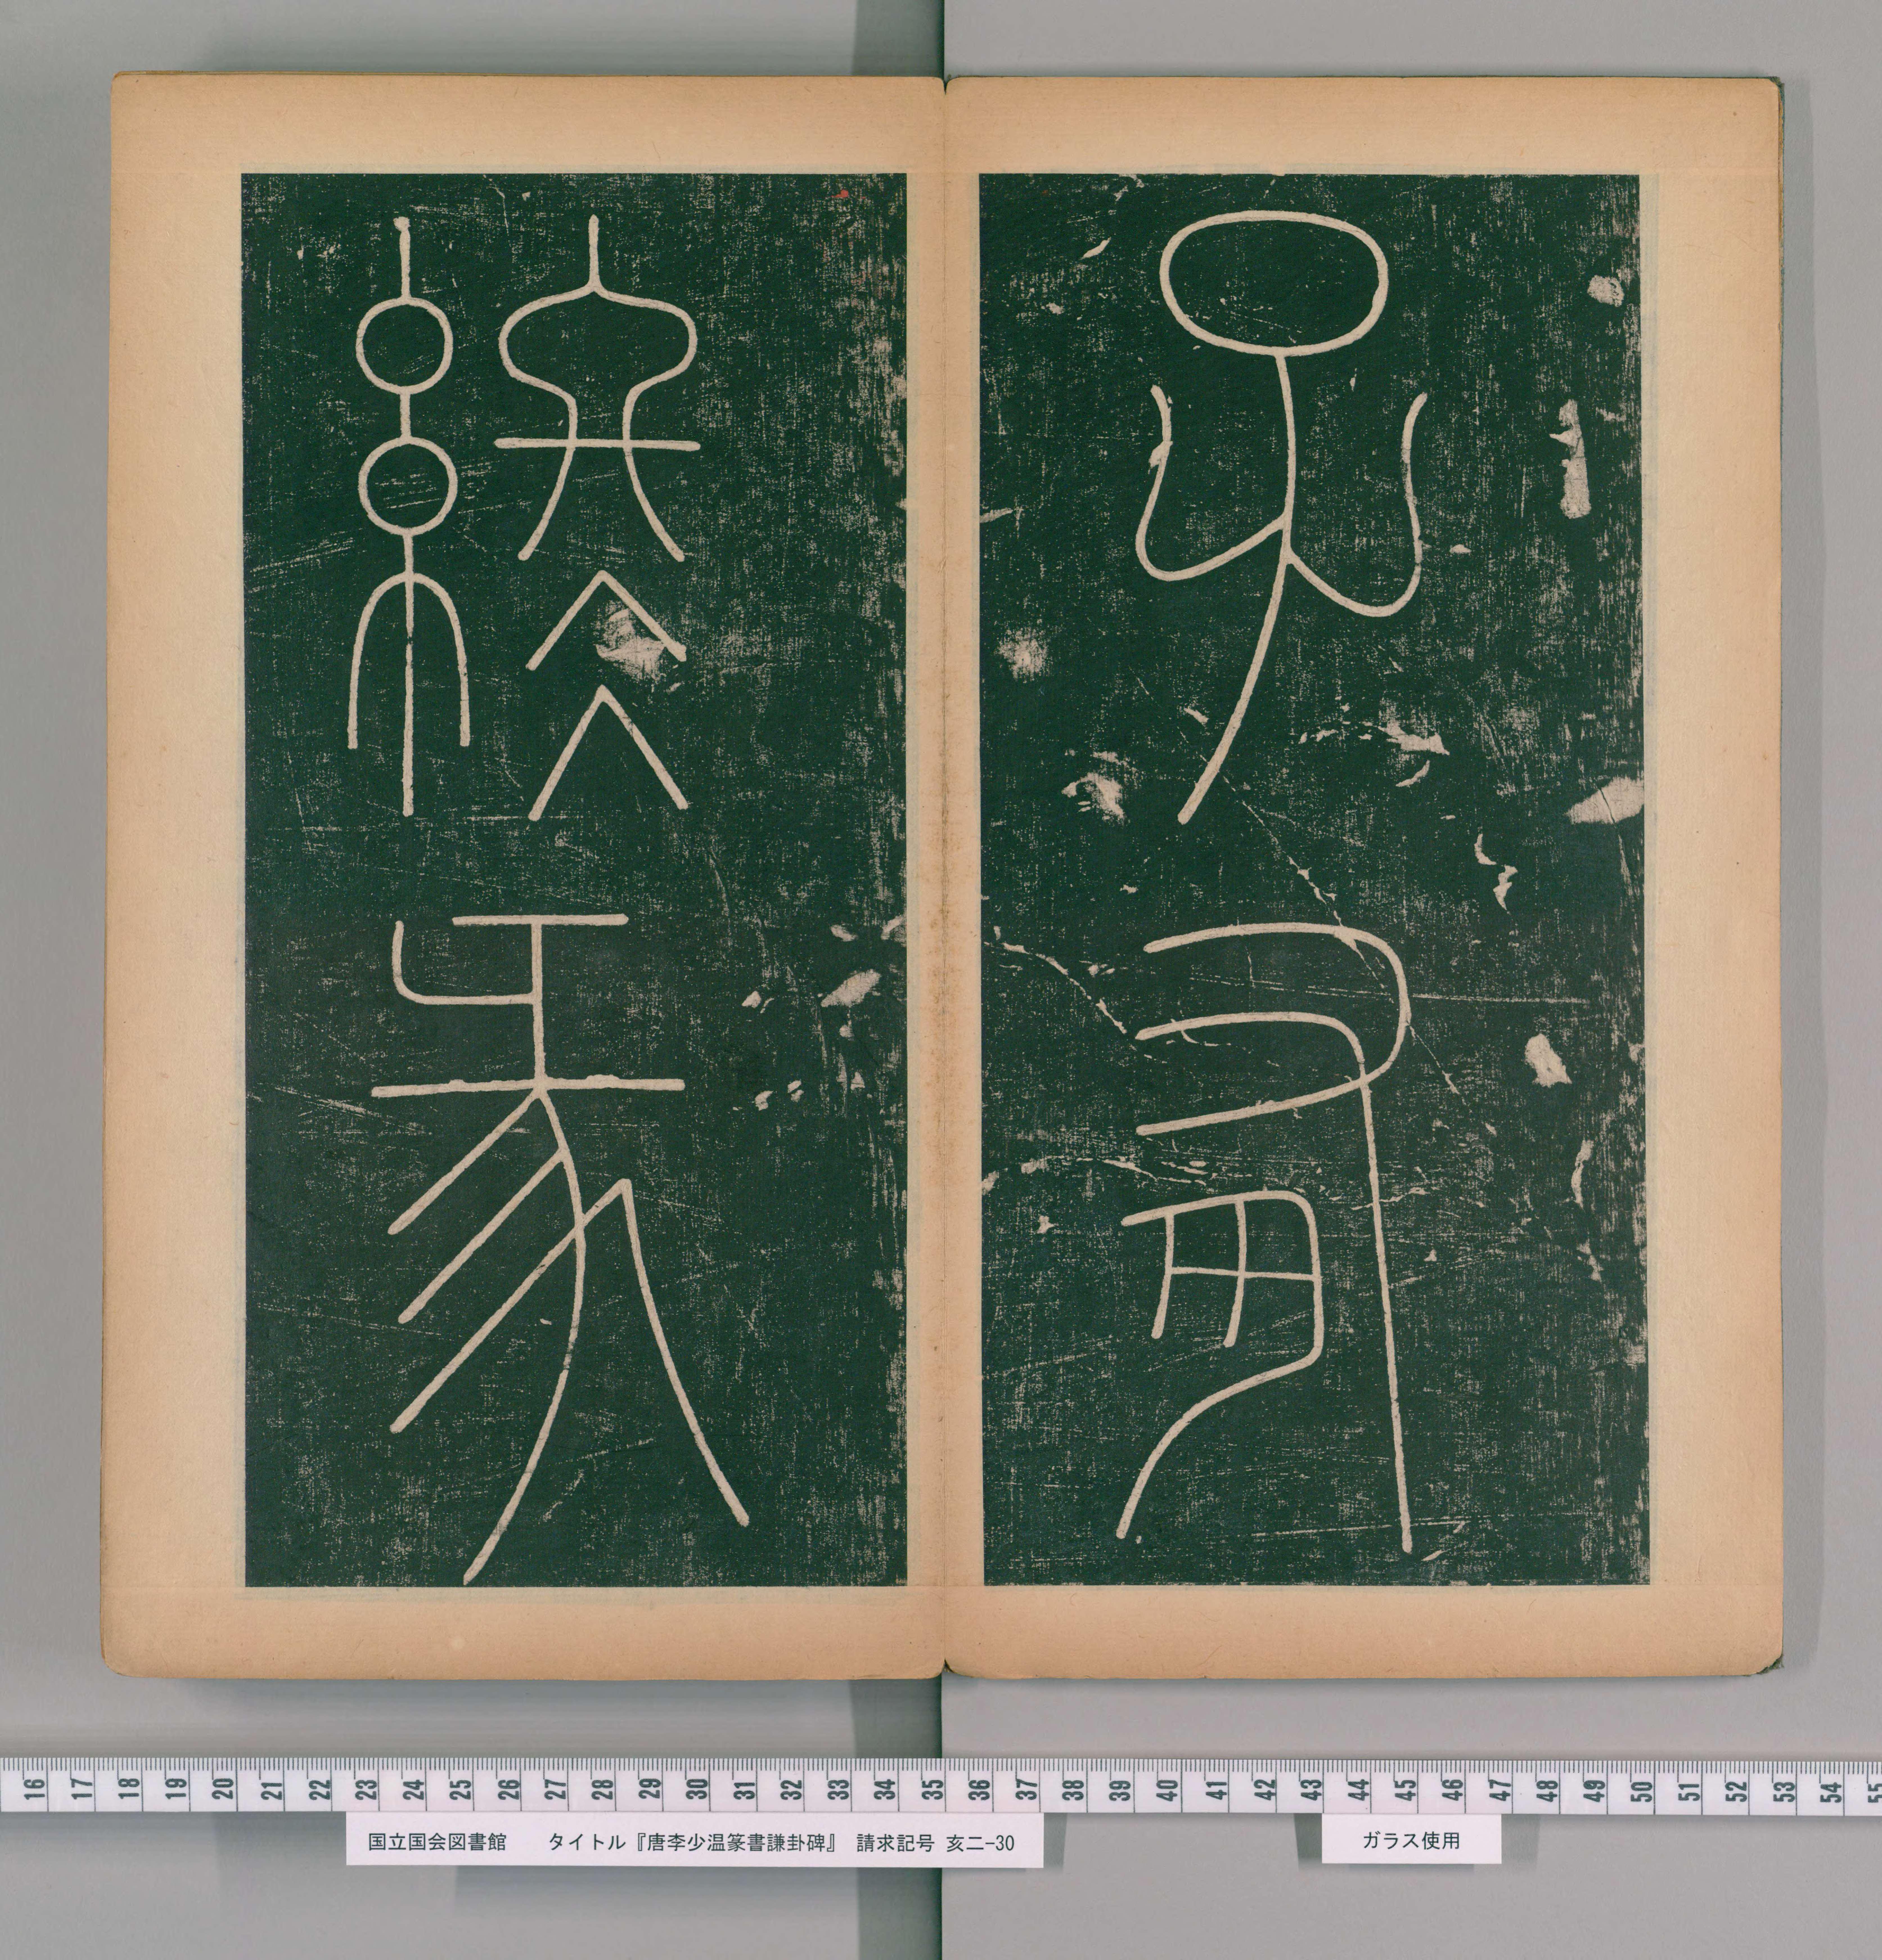 子有
終彖
16 17 18 19 20 21 22 23 24 25 26 27 28 29 30 31 32 33 34 35 36 37 38 39 40 41 42 43 44 45 46 47 48 49 50 51 52 53 54 55
国立国会図書館　タイトル『唐李少温篆書謙卦碑』 請求記号 亥二-30
ガラス使用